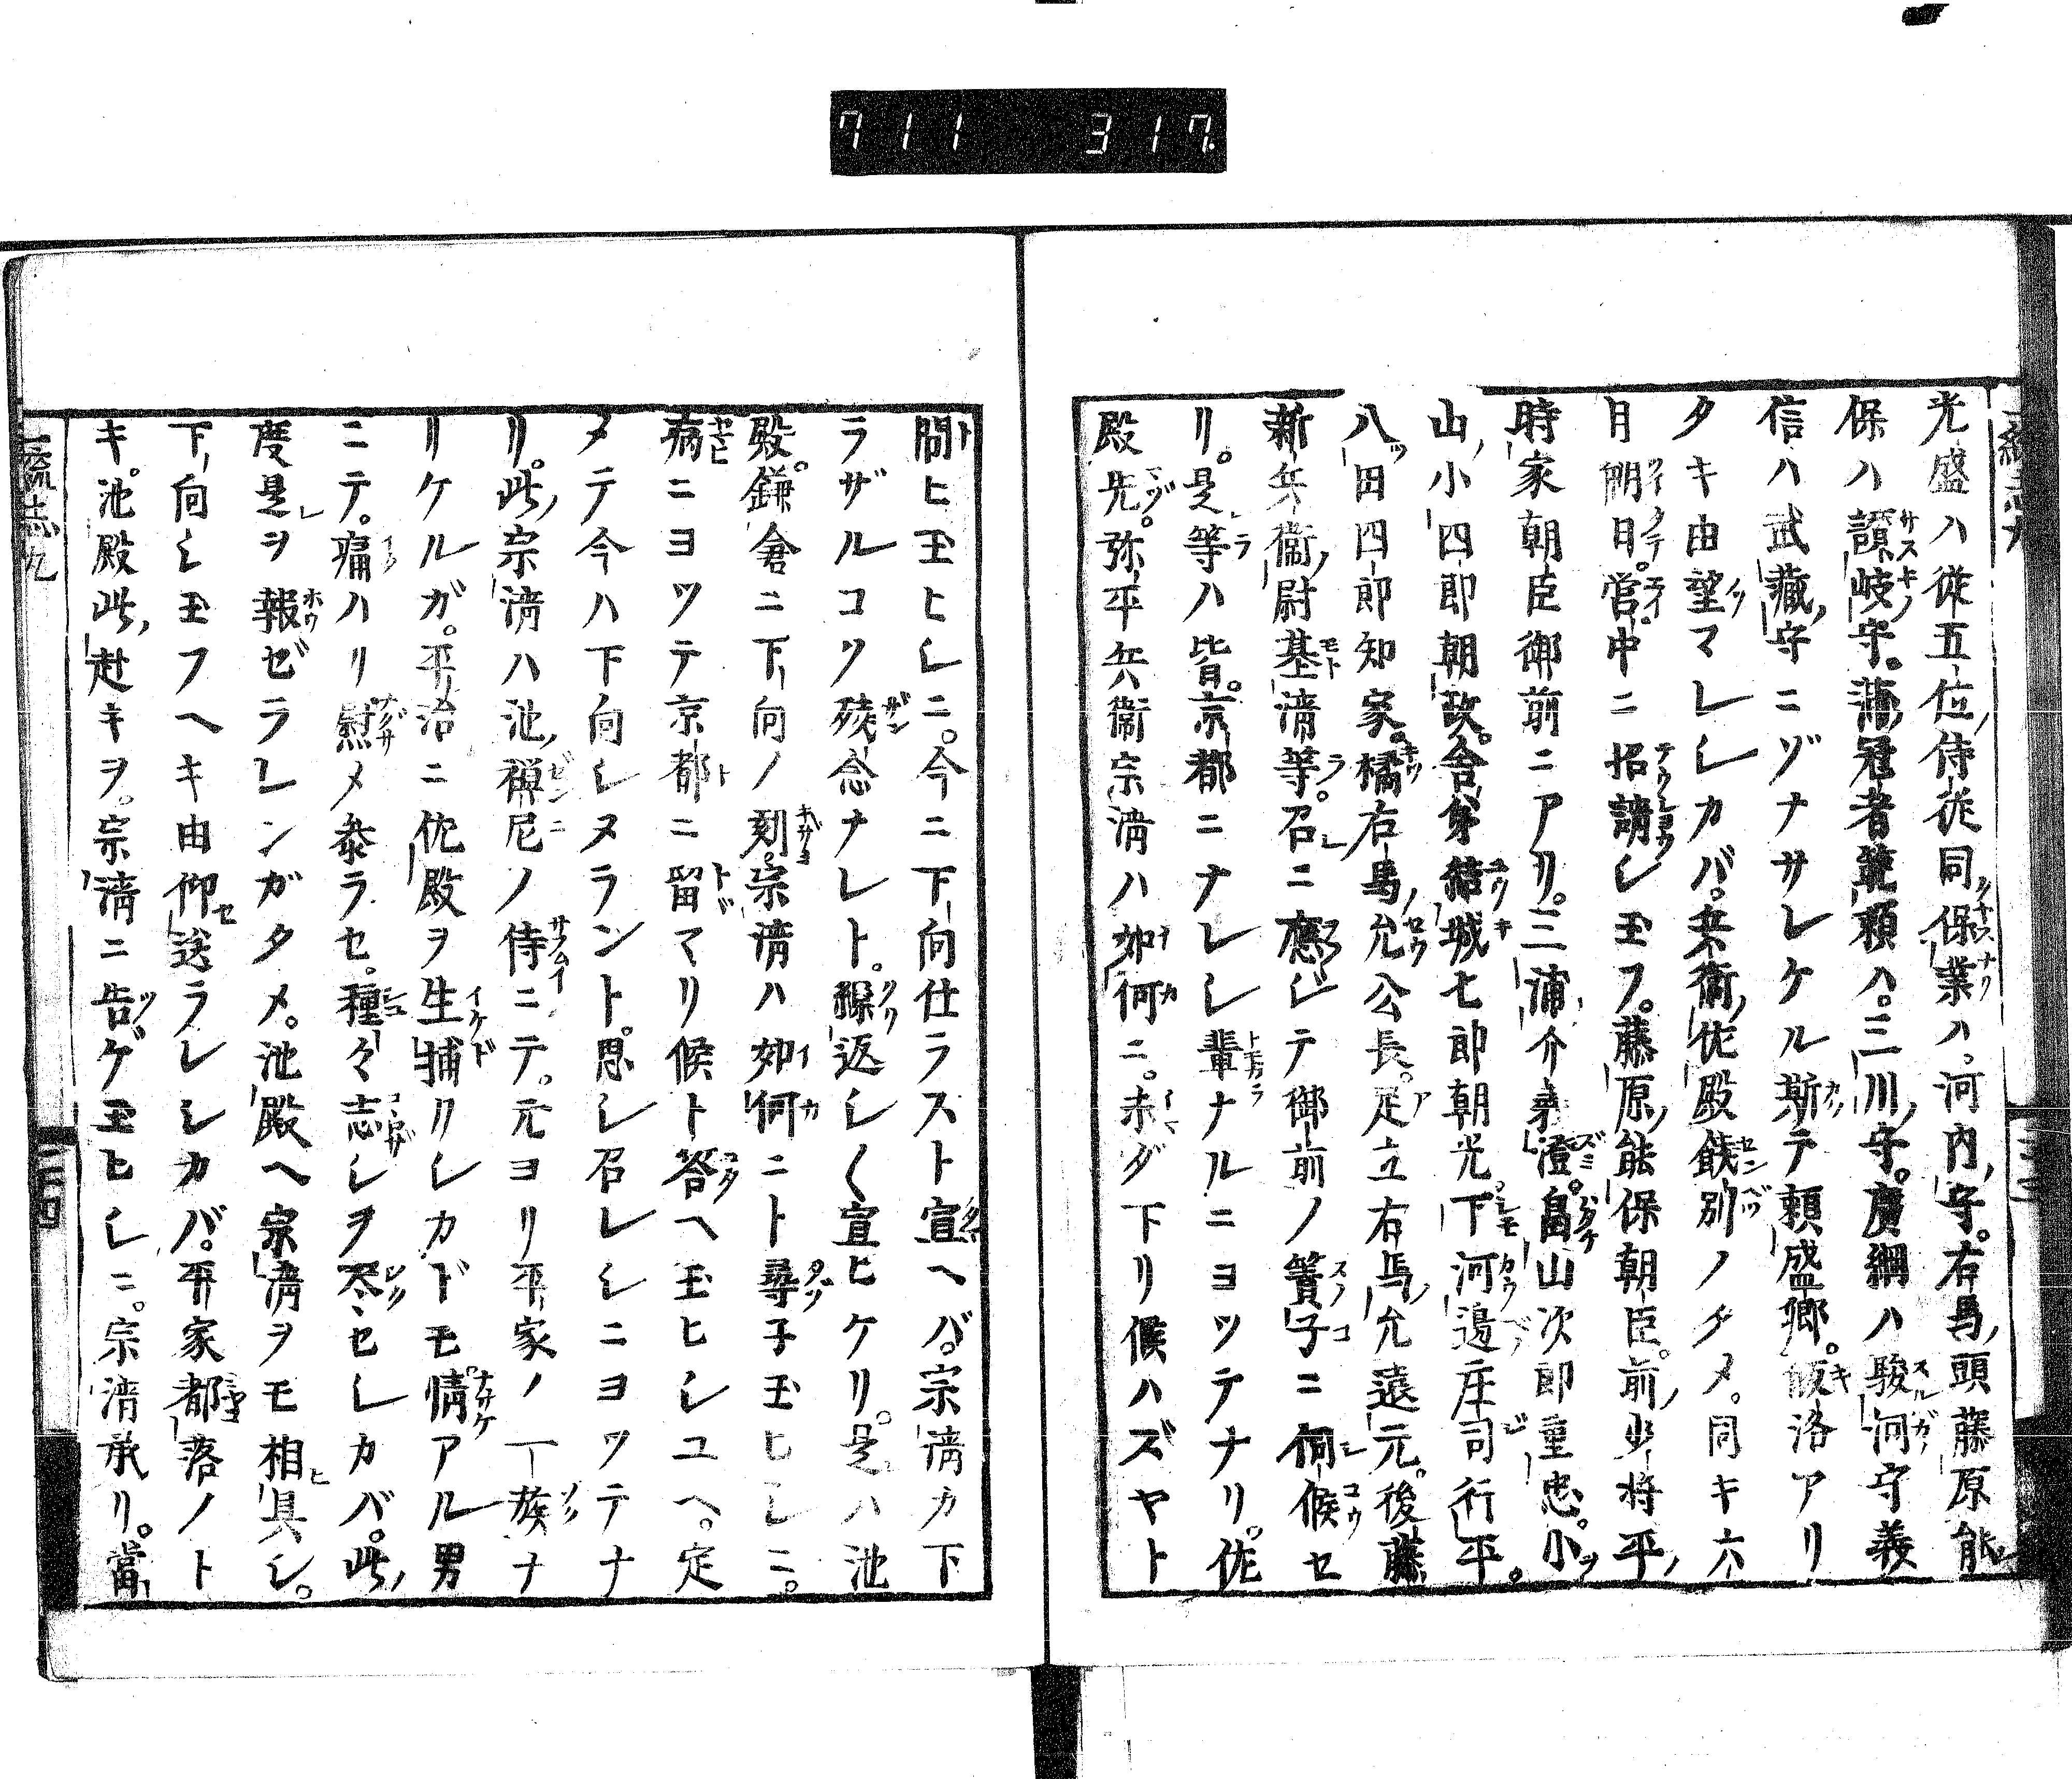 711 317
光盛ハ従五位侍従同保業ハ。河内守。右馬頭藤原能
保ハ讃岐守。蒲冠者範頼ハ。三川守。廣綱ハ駿河守義
信ハ武藏守ニゾナサレケル斯テ頼盛卿。皈洛アリ
タキ由望マレシカバ。兵衛佐殿餞別ノタメ。同キ六
月朔日。営中ニ招請シ玉フ。藤原能保朝臣。前少将平
時家朝臣御前ニアリ。三浦介義澄。畠山次郎重忠。小
山小四郎朝政。舎弟結城七郎朝光。下河邉庄司行平。
八田四郎知家。橘右馬允公長。足立右馬允遠元。後藤
新兵衛尉基清等。召ニ應ジテ御前ノ簀子ニ伺候セ
リ。是等ハ皆。京都ニナレシ輩ナルニヨツテナリ。佐
殿先。弥平兵衛宗清ハ如何ニ。未ダ下リ候ハズヤト
問ヒ玉ヒシニ。今ニ下向仕ラスト宣ヘバ。宗清カ下
ラザルコソ殘念ナレト。繰返シ〱宣ヒケリ。是ハ池
殿。鎌倉ニ下向ノ刻。宗清ハ如何ニト尋子玉ヒシニ。
病ニヨツテ京都ニ留マリ候ト答ヘ玉ヒシユヘ。定
メテ今ハ下向シヌラント。思シ召レシニヨツテナ
リ。此宗清ハ池禅尼ノ侍ニテ。元ヨリ平家ノ一族ナ
リケルガ。平治ニ佐殿ヲ生捕リシカドモ。情アル男
ニテ。痛ハリ慰メ参ラセ。種々志シヲ尽セシカバ。此
度是ヲ報ゼラレンガタメ。池殿ヘ宗清ヲモ相具シ。
下向シ玉フヘキ由仰送ラレシカバ。平家都落ノト
キ。池殿此赴キヲ。宗清ニ告ゲ玉ヒシニ。宗清承リ。當